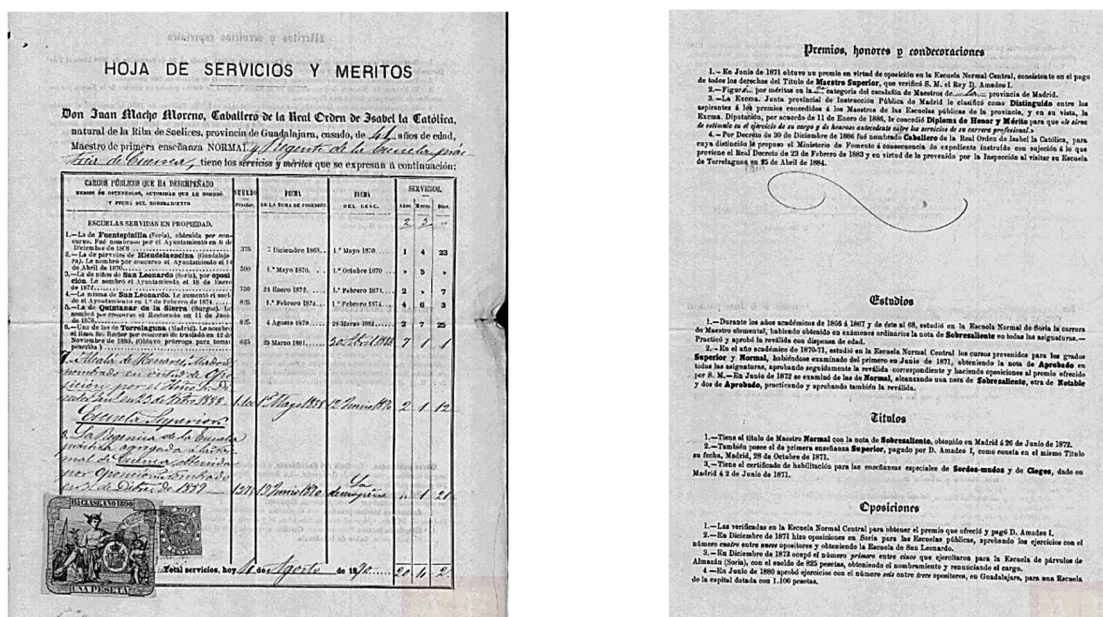 HOJA DE SERVICIOS Y MERITOS
Don Juan Macho Moreno, Caballero de la Real Orden de Isabel la Católica,
natural de la Riba de Saelices, provincia de Guadalajara, casado, de 41 años de edad,
Maestro de primera enseñanza NORMAL y Regente de la escuela prác-
tica de Cuenca, tiene los servicios y méritos que se expresan á continuación:
CARGOS PÚBLICOS QUE HA DESEMPEÑADO
MEDIOS DE OBTENERLOS, AUTORIDAD QUE LE NOMBRÓ
Y FECHA DEL NOMBRAMIENTO
SUELDO
Pesetas.
FECHA
DE LA TOMA DE POSESIÓN
FECHA
DEL CESE.
SERVICIOS.
Años Meses Días.
ESCUELAS SERVIDAS EN PROPIEDAD.
2 2 "
1.—La de Fuentepinilla (Soria), obtenida por con-
curso. Fué nombrado por el Ayuntamiento en 6 de
Diciembre de 1868 375 7 Diciembre 1868 1.º Mayo 1870 1 4 23
2.—La de párvulos de Hiendelaencina (Guadalaja-
ra). Le nombró por concurso el Ayuntamiento el 14
de Abril de 1870 500 1.º Mayo 1870 1.º Octubre 1870 » 5 »
3.—La de niños de San Leonardo (Soria), por oposi-
ción. Le nombró el Ayuntamiento el 18 de Enero
de 1872 750 24 Enero 1872 1.º Febrero 1874 2 » 7
4.—La misma de San Leonardo. Le aumentó el suel-
do el Ayuntamiento en 1.º de Febrero de 1874 825 1.º Febrero 1874 1.º Febrero 1874 4 6 3
5.—La de Quintanar de la Sierra (Burgos). Le
nombró por concurso el Rectorado en 11 de Junio
de 1878 825 4 Agosto 1878 28 Marzo 1881 2 7 25
6.—Una de las de Torrelaguna (Madrid). Le nombró
el Ilmo. Sr. Rector por concurso de traslado en 12 de
Noviembre de 1880. (Obtuvo prórroga para tomar
posesión) 825 29 Marzo 1881 30 Abril 1888 7 1 1
7. Alcalá de Henares, Madrid
nombrado en virtud de Opo-
sición por el Ilmo. Sr. Di-
1.100 1º Mayo 1888 12 Junio 1890 2 1 12
Escuela Superior
8. La Regencia de la escuela
práctica agregada á la Nor-
mal de Cuenca obtenida
por oposición
1375 13 Junio 1890 La
desempeña " 1 21
11ª CLASE AÑO 1890
UNA PESETA
Total servicios, hoy de Agosto de 1890 20
Premios, honores y condecoraciones
1.—En Junio de 1871 obtuvo un premio en virtud de oposición en la Escuela Normal Central, consistente en el pago
de todos los derechos del Título de Maestro Superior, que verificó S. M. el Rey D. Amadeo I.
2.—Figura por méritos en la categoría del escalafón de Maestros de la provincia de Madrid.
3.—La Excma. Junta provincial de Instrucción Pública de Madrid le clasificó como Distinguido entre los
aspirantes á los premios concedidos á los Maestros de las Escuelas públicas de la provincia, y en su vista, la
Excma. Diputación, por acuerdo de 11 de Enero de 1886, le concedió Diploma de Honor y Mérito para que «le sirva
de estímulo en el ejercicio de su cargo y de honroso antecedente entre los servicios de su carrera profesional.»
4.—Por Decreto de 30 de Diciembre de 1886 fué nombrado Caballero de la Real Orden de Isabel la Católica, para
cuya distinción le propuso el Ministerio de Fomento á consecuencia de expediente instruido con sujeción á lo que
previene el Real Decreto de 23 de Febrero de 1883 y en virtud de lo prevenido por la Inspección al visitar su Escuela
de Torrelaguna en 25 de Abril de 1884.
Estudios
1.—Durante los años académicos de 1866 á 1867 y de éste al 68, estudió en la Escuela Normal de Soria la carrera
de Maestro elemental, habiendo obtenido en exámenes ordinarios la nota de Sobresaliente en todas las asignaturas.—
Practicó y aprobó la reválida con dispensa de edad.
2.—En el año académico de 1870-71, estudió en la Escuela Normal Central los cursos prevenidos para los grados
Superior y Normal, habiéndose examinado del primero en Junio de 1871, obteniendo la nota de Aprobado en
todas las asignaturas, aprobando seguidamente la reválida correspondiente y haciendo oposiciones al premio ofrecido
por S. M.—En Junio de 1872 se examinó de las de Normal, alcanzando una nota de Sobresaliente, otra de Notable
y dos de Aprobado, practicando y aprobando también la reválida.
Titulos
1.—Tiene el título de Maestro Normal con la nota de Sobresaliente, obtenido en Madrid á 26 de Junio de 1872.
2.—También posee el de primera enseñanza Superior, pagado por D. Amadeo I, como consta en el mismo Título
su fecha, Madrid, 28 de Octubre de 1871.
3.—Tiene el certificado de habilitación para las enseñanzas especiales de Sordos-mudos y de Ciegos, dado en
Madrid á 2 de Junio de 1871.
Oposiciones
1.—Las verificadas en la Escuela Normal Central para obtener el premio que ofreció y pagó D. Amadeo I.
2.—En Diciembre de 1871 hizo oposiciones en Soria para las Escuelas públicas, aprobando los ejercicios con el
número cuatro entre nueve opositores y obteniendo la Escuela de San Leonardo.
3.—En Diciembre de 1873 ocupó el número primero entre cinco que ejercitaron para la Escuela de párvulos de
Almazán (Soria), con el sueldo de 825 pesetas, obteniendo el nombramiento y renunciando el cargo.
4—En Junio de 1880 aprobó ejercicios con el número seis entre trece opositores, en Guadalajara, para una Escuela
de la capital dotada con 1.100 pesetas.